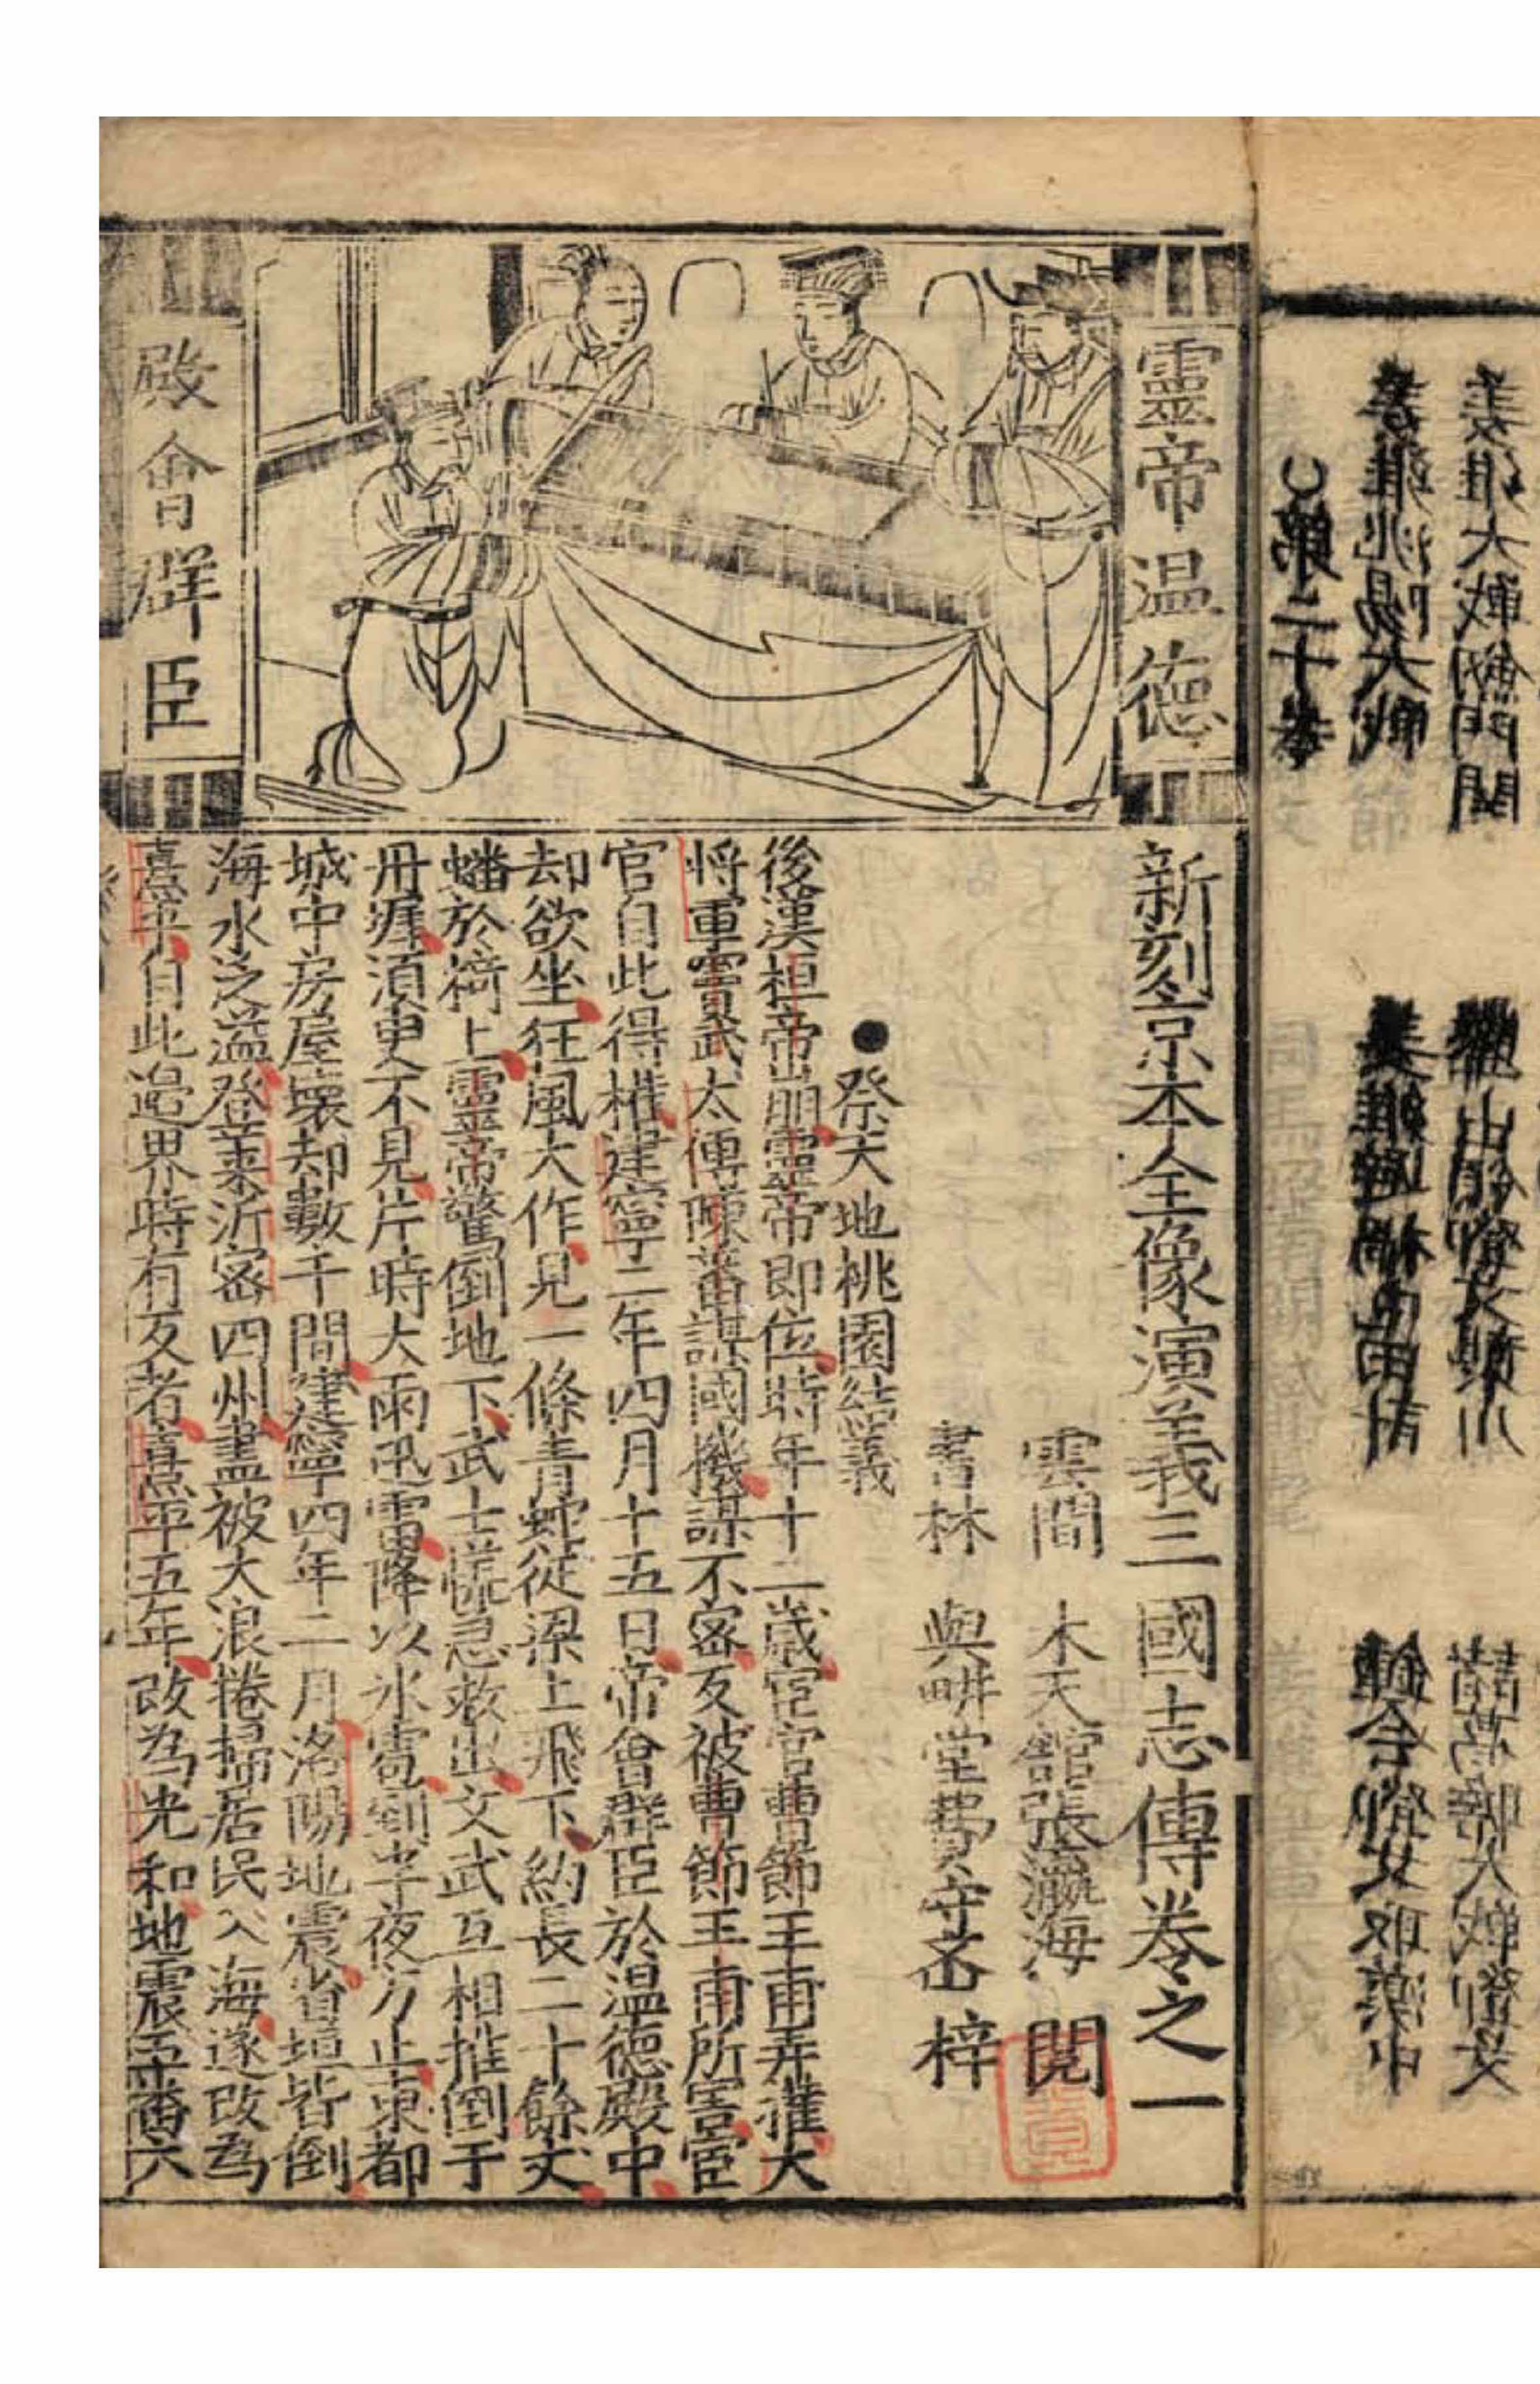 靈帝温德
殿會群臣
新刻京本全像演義三國志傳卷之一
雲間 木天館張瀛海 閱
書林 與畊堂費守齋 梓
●祭天地桃園結義
後漢桓帝崩靈帝即位時年十二歲宦官曹節王甫弄權大
將軍竇武太傅陳蕃謀國機謀不密反被曹節王甫所害宦
官自此得権建寧二年四月十五日帝會群臣於温德殿中
却欲坐狂風大作見一條青蛇從梁上飛下約長二十餘丈
蟠於椅上靈帝驚倒地下武士慌急救出文武互相推倒于
丹墀須臾不見片時大雨迅雷降以氷雹到半夜方止東都
城中房屋壞却數千間建寧四年二月洛陽地震省垣皆倒
海水泛溢登莱沂密四州盡被大浪捲掃居民入海遂改為
熹平自此邉界時有反者熹平五年改為光和地震
第二十卷
姜維洮陽大戰
姜維大戰劍門關